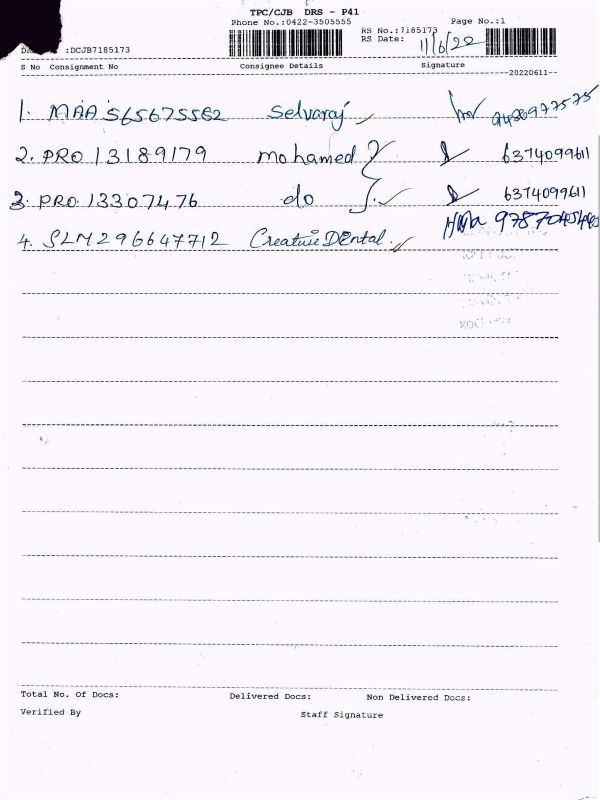 TPC/CJB DRS - P41
Phone No.:0422-3505555 Page No.:1
RS No.:7185173
:DCJB7185173 RS Date: 11/6/22
S No Consignment No Consignee Details Signature
20220611
1. MAA 565675562 Selvaraj
2. PRO 13189179 mohamed 6374099611
3. PRO 13307476 do 6374099611
4. SLM 296647712 Creative Dental.
Total No. Of Docs: Delivered Docs: Non Delivered Docs:
Verified By Staff Signature